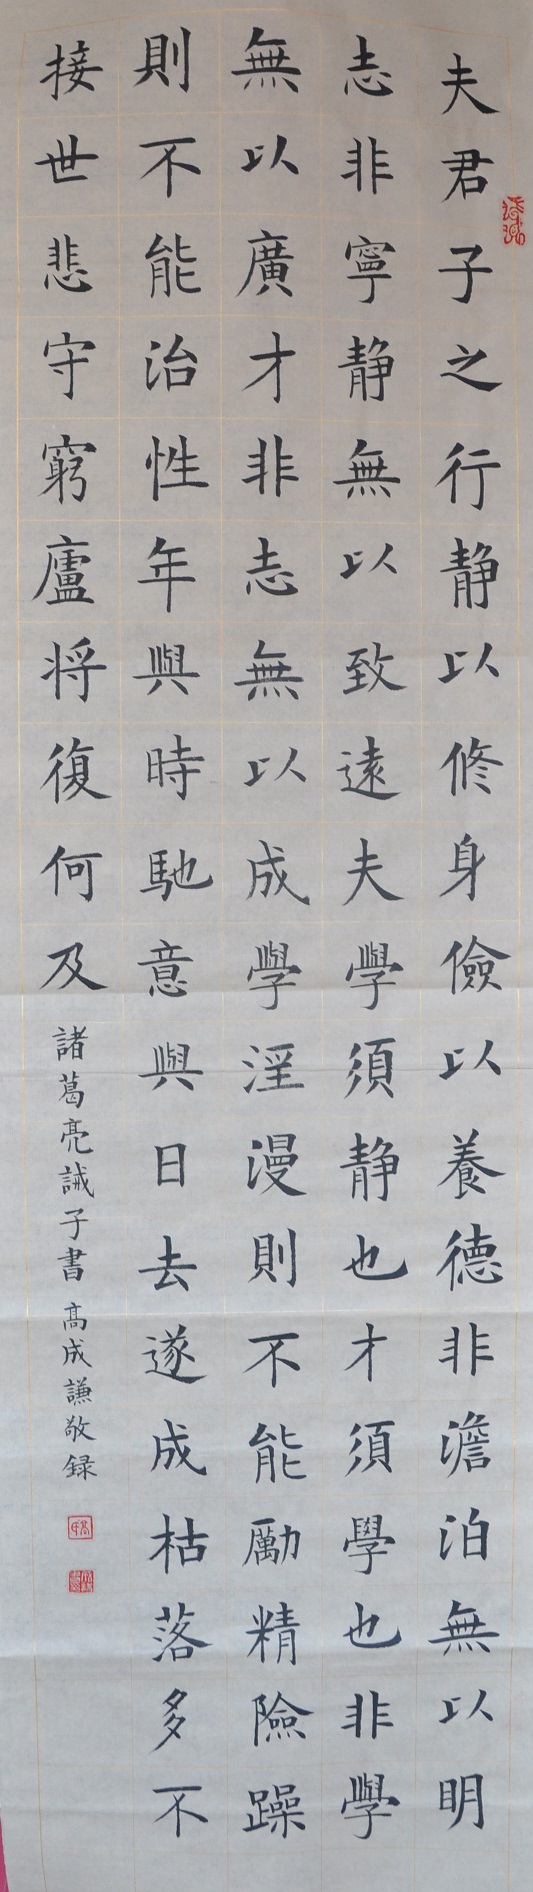 夫君子之行静以修身儉以養德非澹泊無以明
志非寧静無以致遠夫學須静也才須學也非學
無以廣才非志無以成學淫漫則不能勵精險躁
則不能治性年與時馳意與日去遂成枯落多不
接世悲守窮廬将復何及
諸葛亮誡子書 高成謙敬録